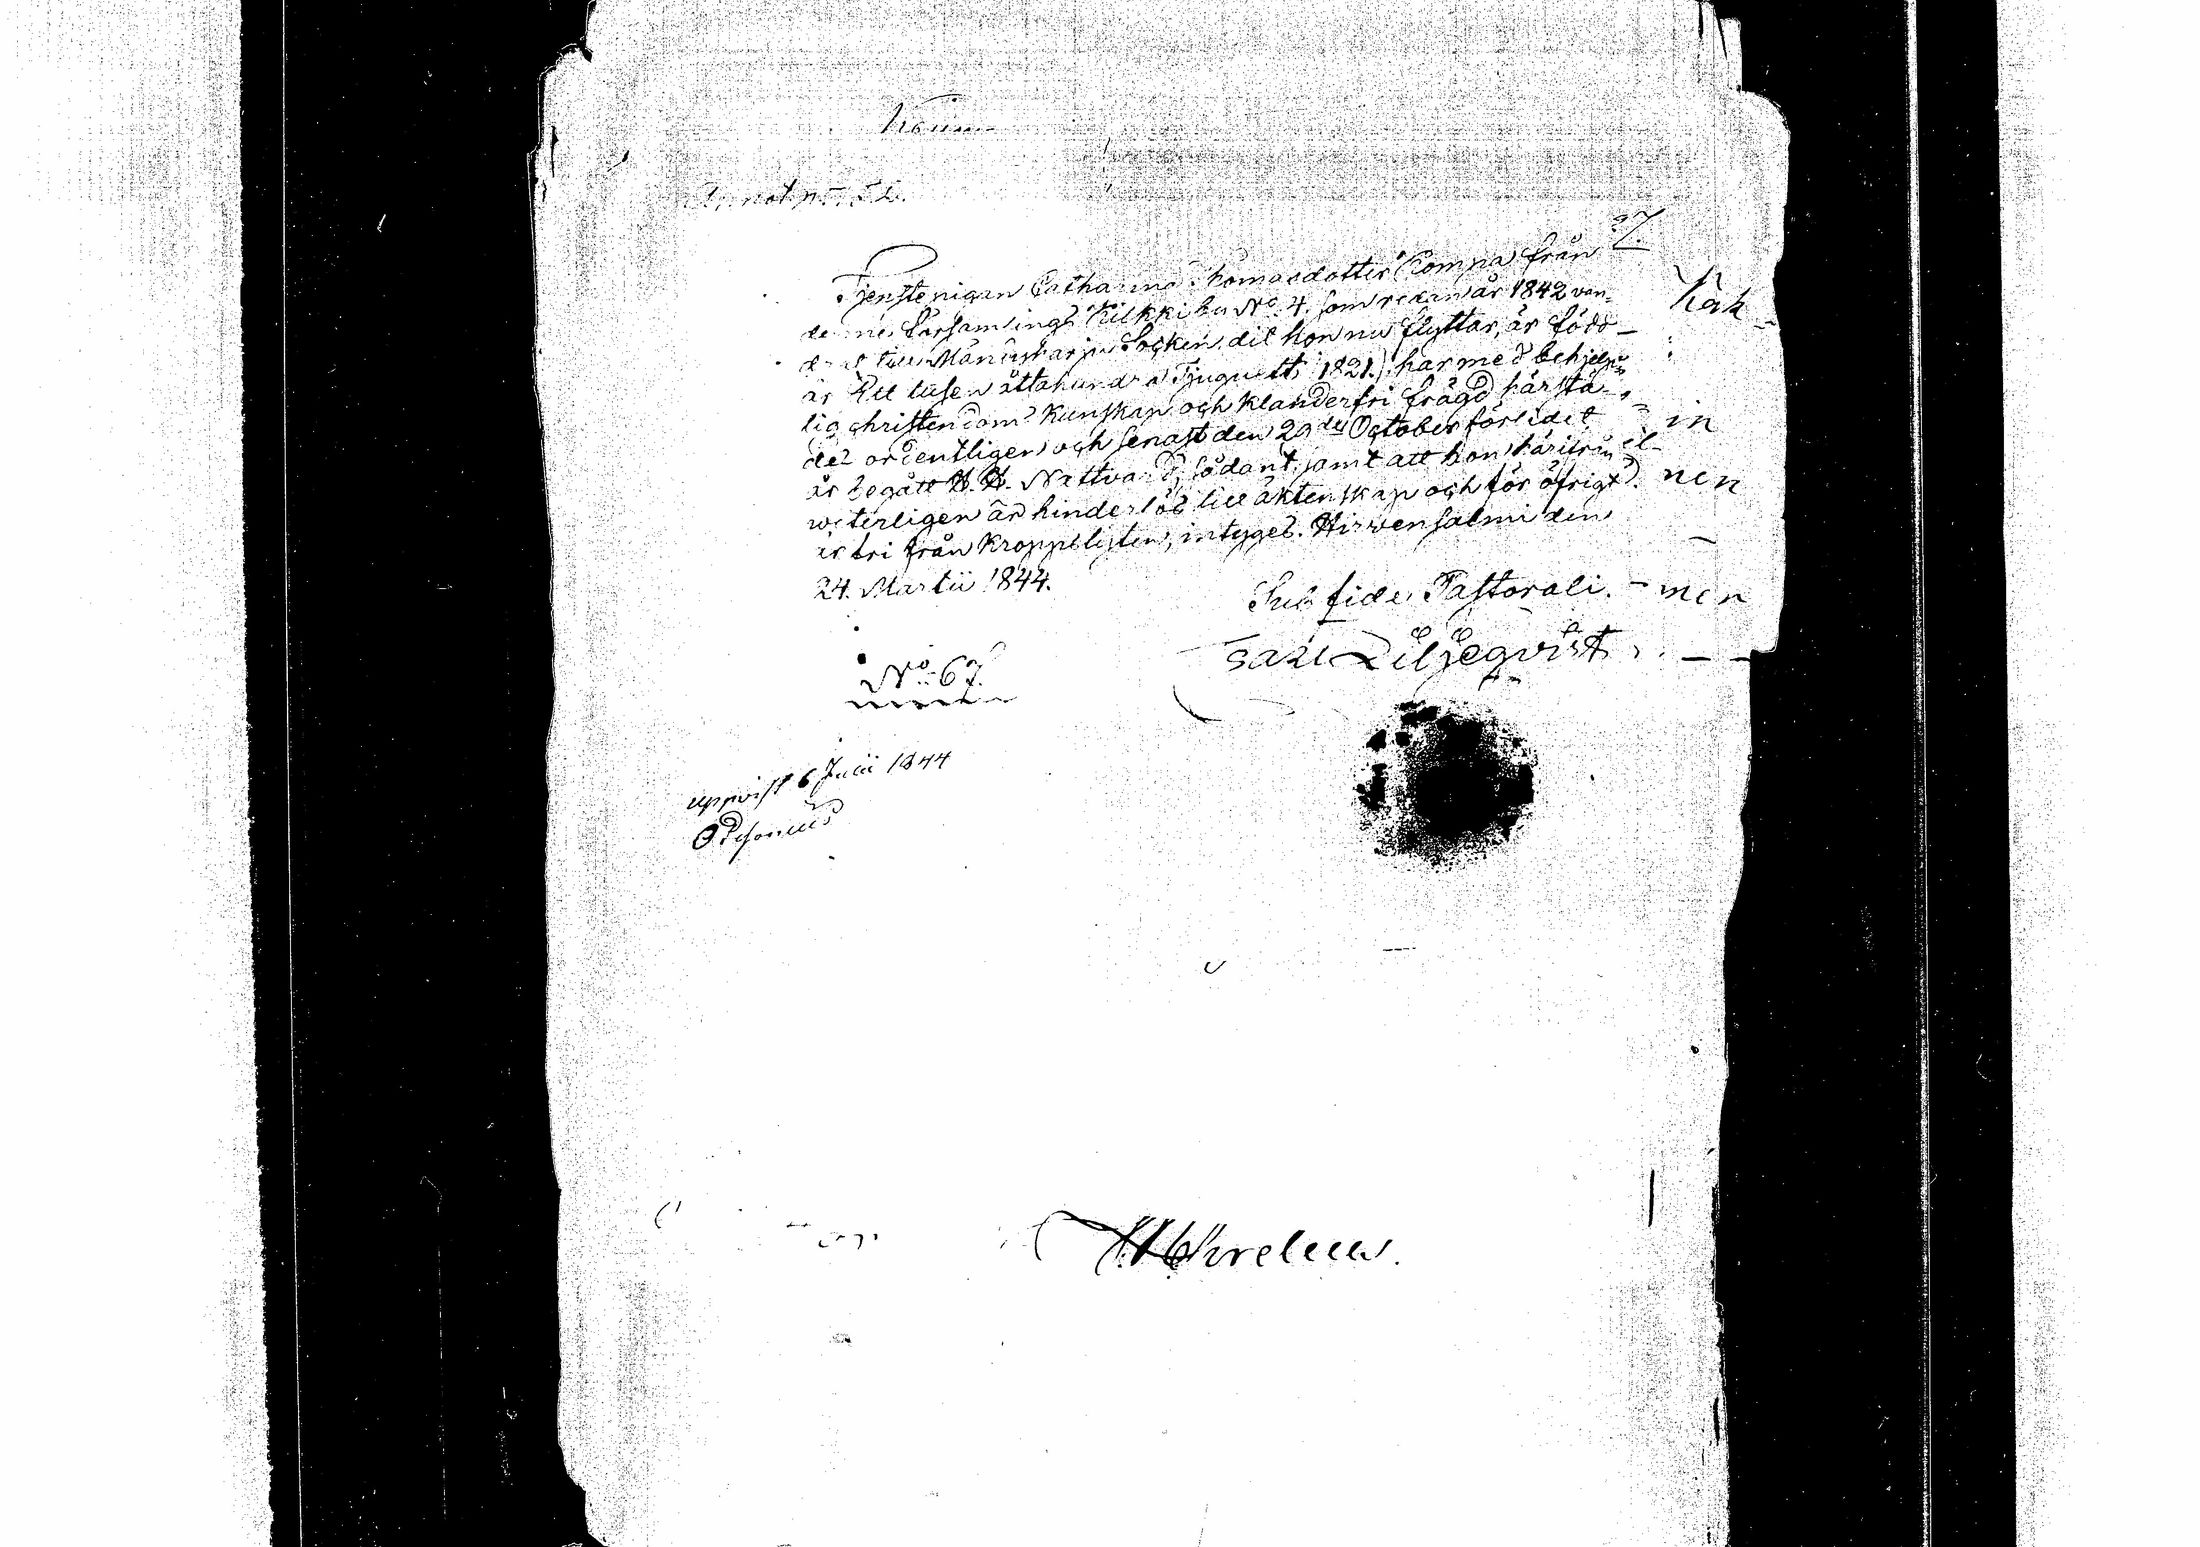 27.
Tjenstepigan Catharina Thomaedotter Kompa från
denne Församlings Kilkki by No. 4. som redan år 1842 van-
drat till Mäntyharju Socken dit hon nu flyttar, är född
år Ett tusen åttahundra Tjuguett, 1821.) har med behjelp-
lig christendoms kunskap och klanderfri frägd härstä-
des ordentligen och senast den 29de October förlidet
år begått H. H. Nattvard, sådant, samt att hon härifrån
veterligen är hinderlös till äktenskap och för öfrigt
är fri från Kroppslyten, intyges. Hirvensalmi den
24. Martii 1844.
Sub fide Pastorali.
Liljeqvist
No. 67.
uppvist 6 Julii 1844
Kak
in
nen
men